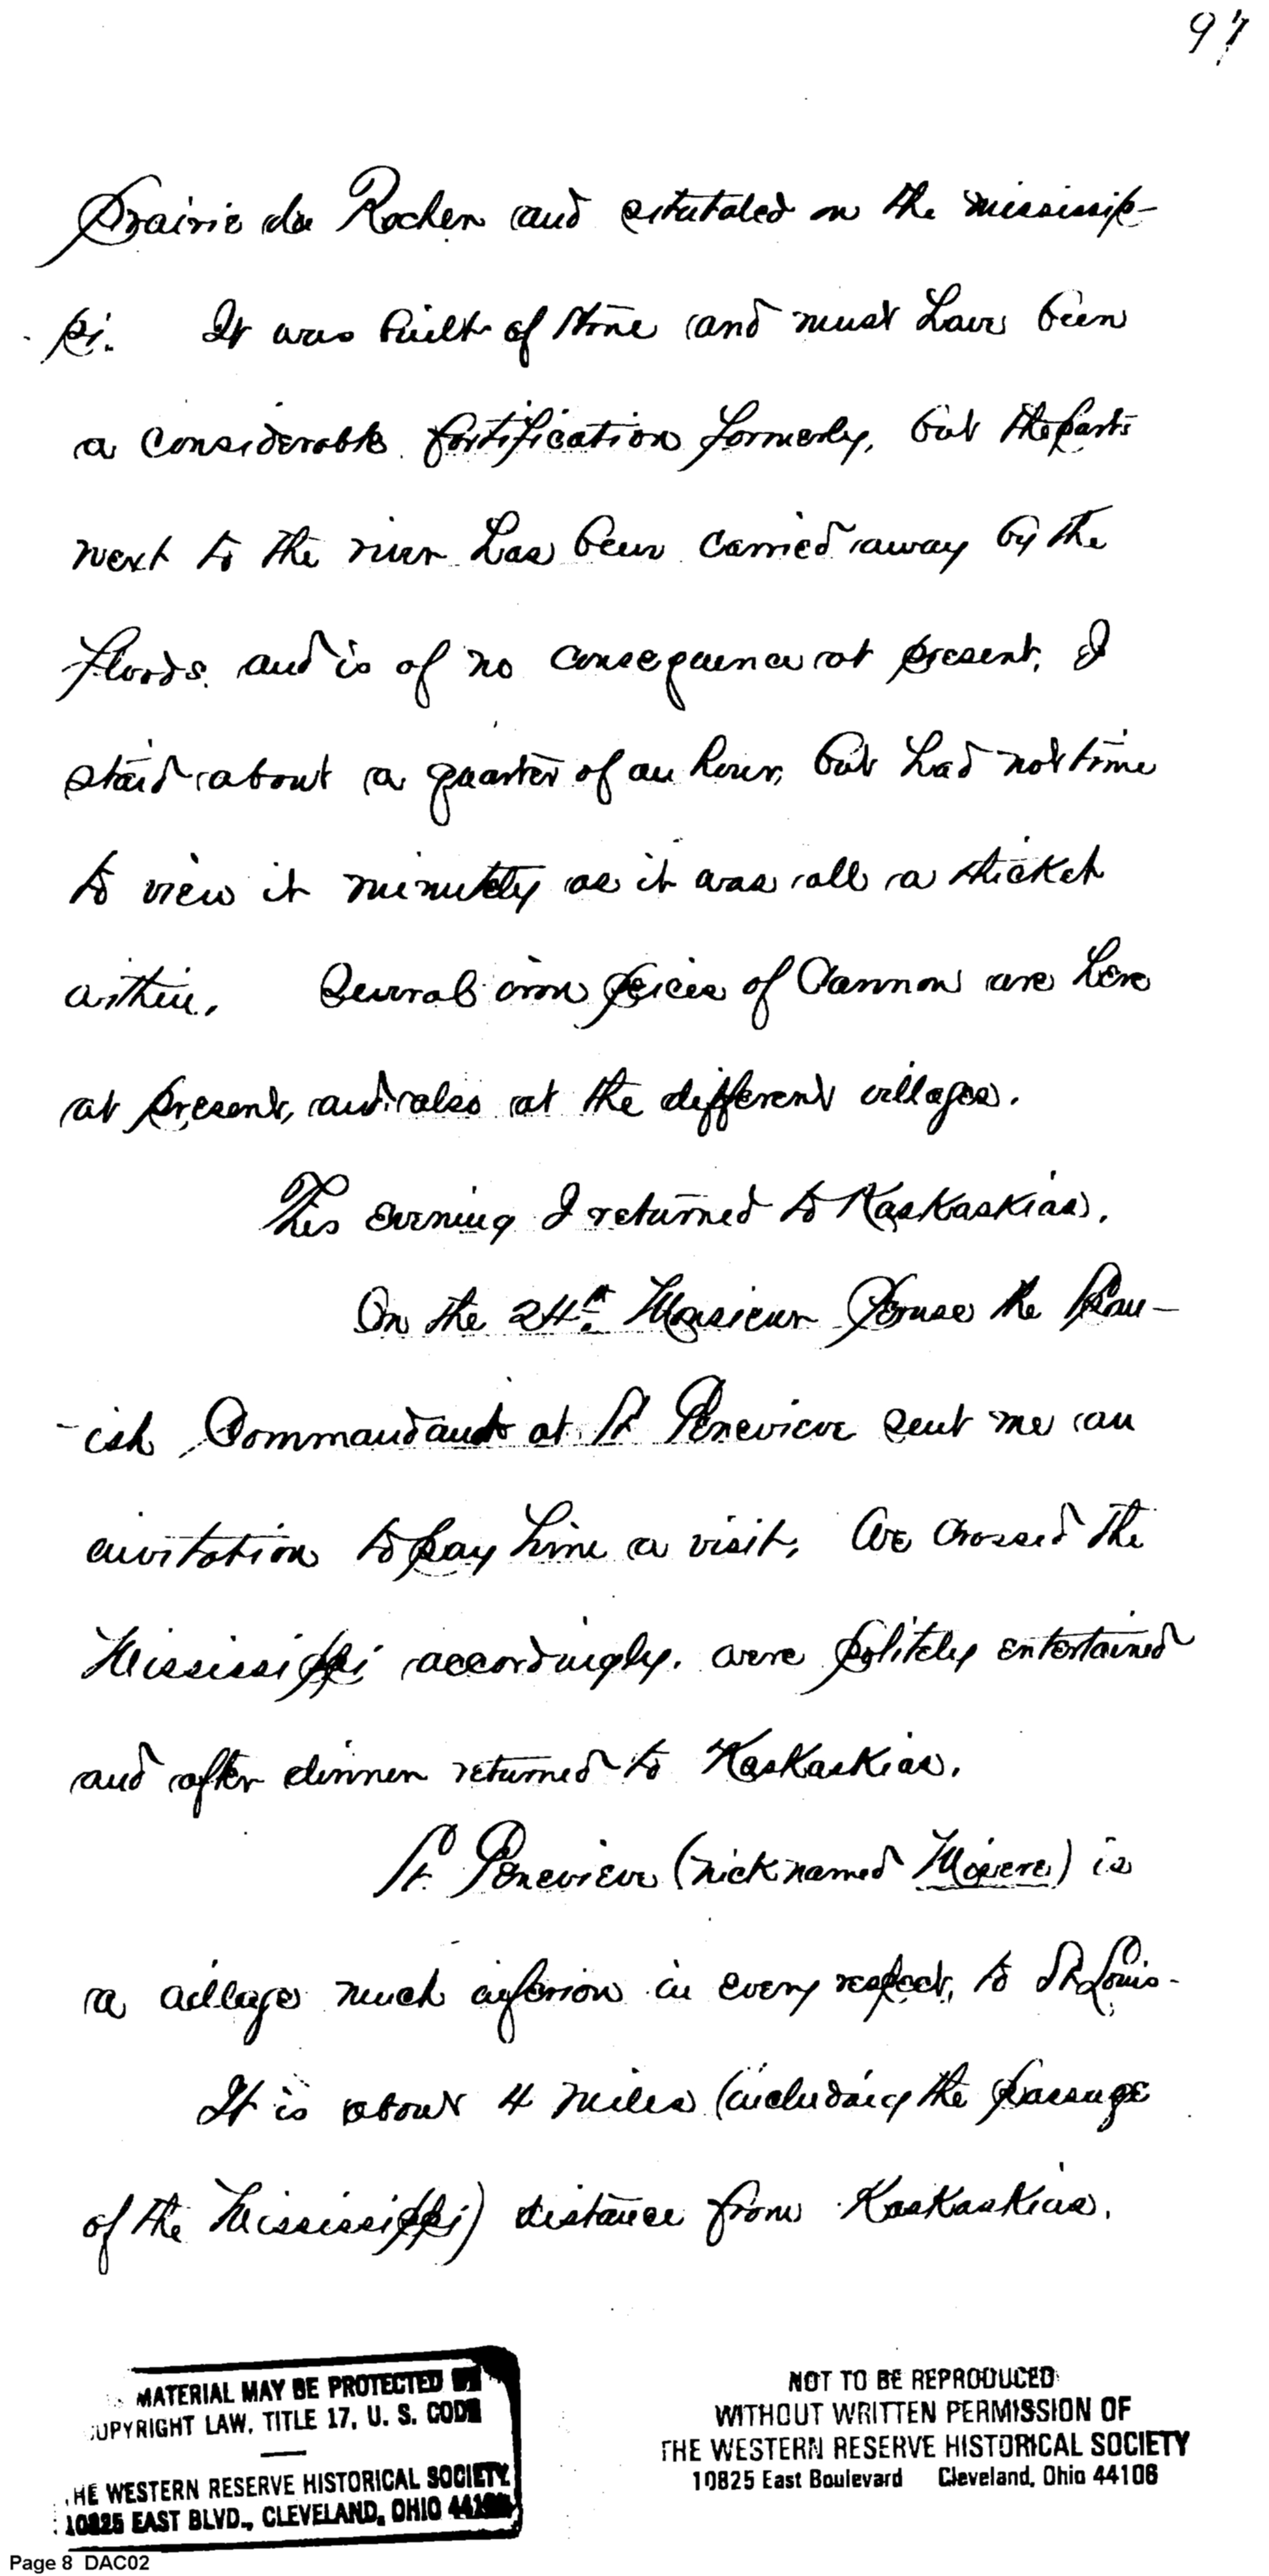 97
Prairie du Rocher and situated on the Mississip-
pi. It was built of stone and must have been
a considerable fortification formerly, but the parts
next to the river has been carried away by the
floods and is of no consequence at present. I
staid about a quarter of an hour, but had not time
to view it minutely as it was all a thicket
within. Several iron peices of Cannon are here
at present, and also at the different villages.
This evening I returned to Kaskaskias.
On the 24th. Monsieur the Span-
-ish Commandant at St Genevieve sent me an
invitation to pay him a visit. We crossed the
Mississippi accordingly. were politely entertained
and after dinner returned to Kaskaskias.
St. Genevieve (nicknamed Misere) is
a village much inferior in every respect, to St Louis-
It is about 4 miles (including the passage
of the Mississippi) distance from Kaskaskias.
MATERIAL MAY BE PROTECTED BY
COPYRIGHT LAW, TITLE 17, U. S. CODE
THE WESTERN RESERVE HISTORICAL SOCIETY
10825 EAST BLVD., CLEVELAND, OHIO 44106
NOT TO BE REPRODUCED
WITHOUT WRITTEN PERMISSION OF
THE WESTERN RESERVE HISTORICAL SOCIETY
10825 East Boulevard Cleveland, Ohio 44106
Page 8 DAC02